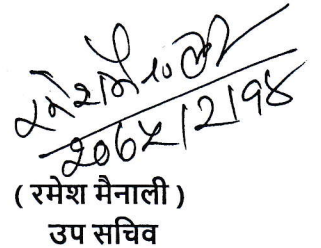 रमेश मैनाली
२०७५।२।१४
( रमेश मैनाली )
उप सचिव